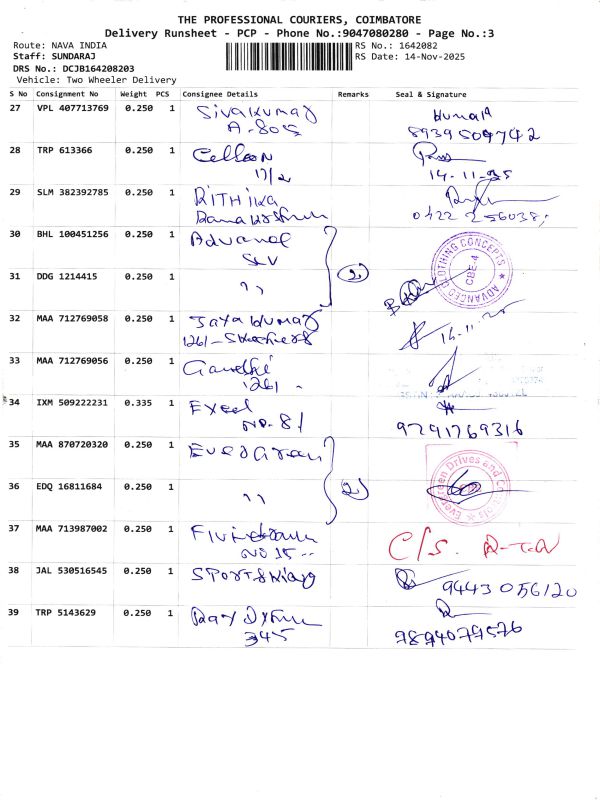 THE PROFESSIONAL COURIERS, COIMBATORE
Delivery Runsheet - PCP - Phone No.:9047080280 - Page No.:3
Route: NAVA INDIA
Staff: SUNDARAJ
DRS No.: DCJB164208203
Vehicle: Two Wheeler Delivery
RS No.: 1642082
RS Date: 14-Nov-2025
S No Consignment No Weight PCS Consignee Details Remarks Seal & Signature
27 VPL 407713769 0.250 1 Sivakumar Kumar
A-805 8939504742
28 TRP 613366 0.250 1
17/2 14-11-25
29 SLM 382392785 0.250 1 RITHIKA
0422 256038
30 BHL 100451256 0.250 1 Advanc
SLV 2 ADVANCED CLOTHING CONCEPTS
CBE-4
31 DDG 1214415 0.250 1 ,,
32 MAA 712769058 0.250 1 Jayakumar
1261- 14-11-25
33 MAA 712769056 0.250 1 Gandhi
1261
34 IXM 509222231 0.335 1 Excel
NO-81 9791769316
35 MAA 870720320 0.250 1 Evergreen
2 Evergreen Drives and
36 EDQ 16811684 0.250 1 ,,
37 MAA 713987002 0.250 1 C/S.
NO 15
38 JAL 530516545 0.250 1 Sports 9443056120
39 TRP 5143629 0.250 1
345 9894079576